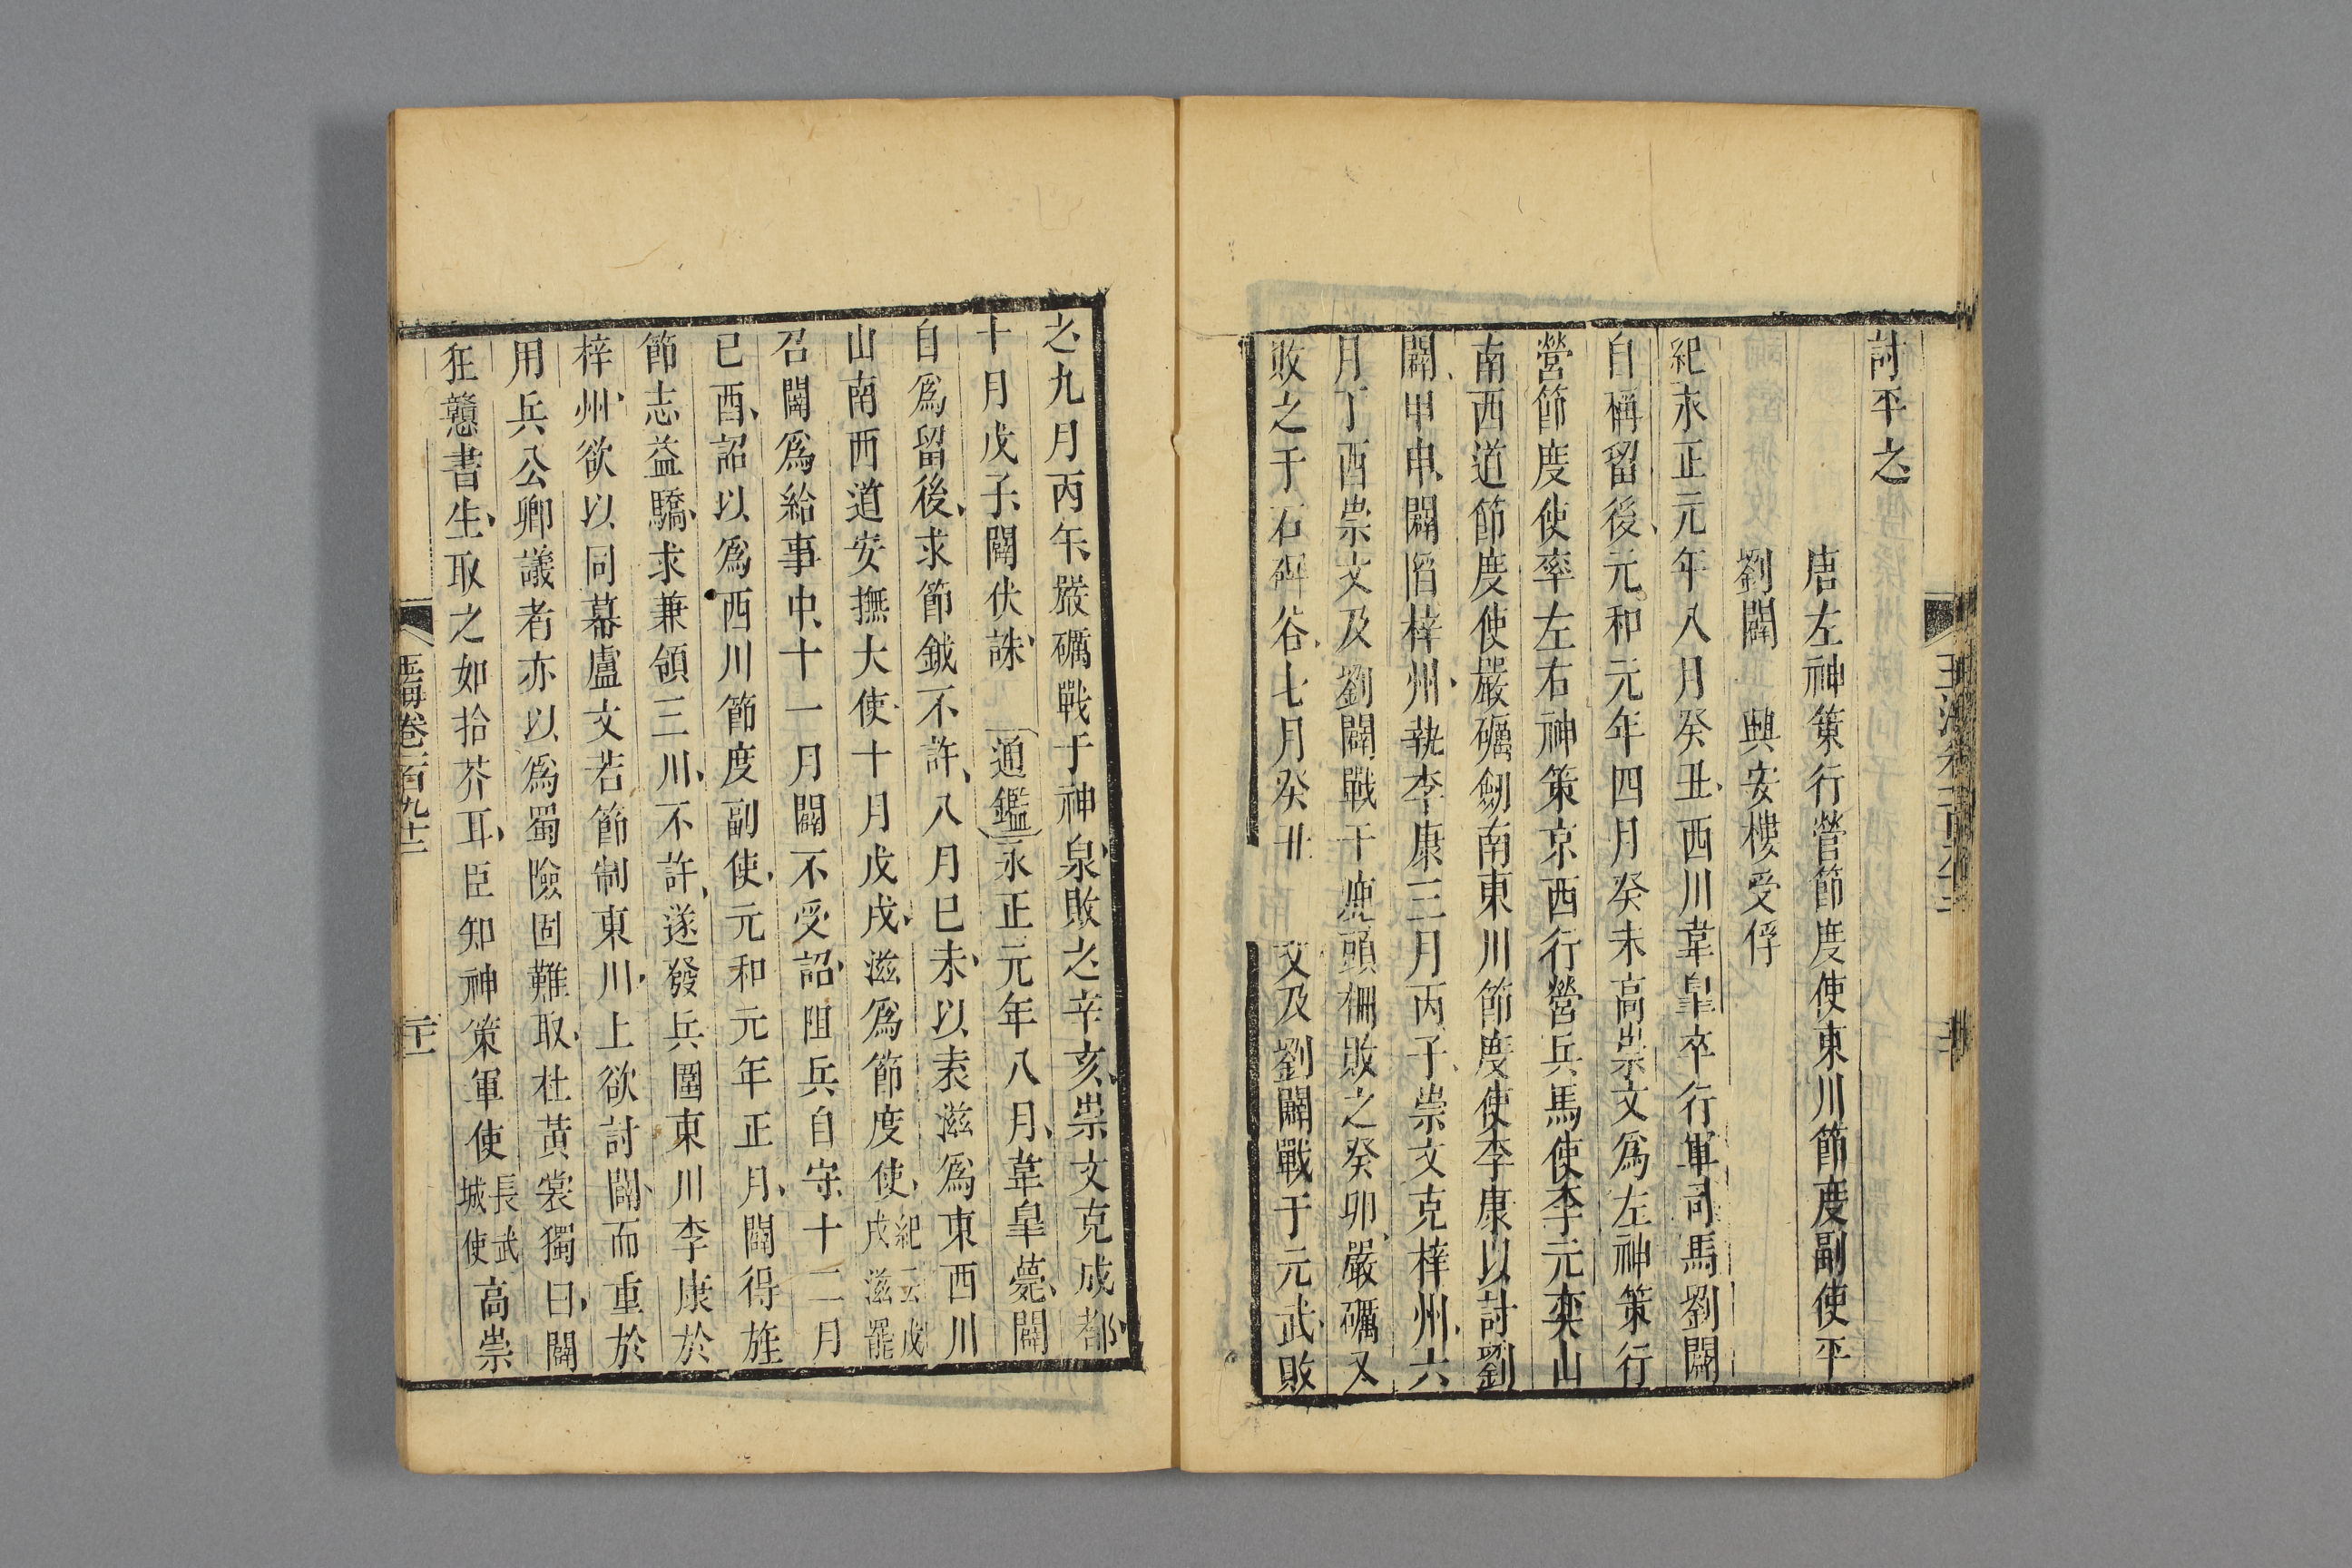 討平之
唐左神策行營節度使東川節度副使平
劉闢　興安樓受俘
紀永正元年八月癸丑西川韋臯卒行軍司馬劉闢
自稱留後元和元年四月癸未高崇文爲左神策行
營節度使率左右神策京西行營兵馬使李元奕山
南西道節度使嚴礪劒南東川節度使李康以討劉
闢甲申闢陷梓州執李康三月丙子崇文克梓州六
月丁酉崇文及劉闢戰于鹿頭柵敗之癸卯嚴礪又
敗之于石碑谷七月癸丑　文及劉闢戰于元武敗
之九月丙午嚴礪戰于神泉敗之辛亥崇文克成都
十月戊子闢伏誅　通鑑永正元年八月韋臯薨闢
自爲留後求節鉞不許八月已未以袁滋爲東西川
山南西道安撫大使十月戊戌滋爲節度使紀云戊戌滋罷
召闢爲給事中十一月闢不受詔阻兵自守十二月
已酉詔以爲西川節度副使元和元年正月闢得旌
節志益驕求兼領三川不許遂發兵圍東川李康於
梓州欲以同幕盧文若節制東川上欲討闢而重於
用兵公卿議者亦以爲蜀險固難取杜黃裳獨曰闢
狂戇書生取之如拾芥耳臣知神策軍使長武城使高崇
玉海卷一百九十二
二十一